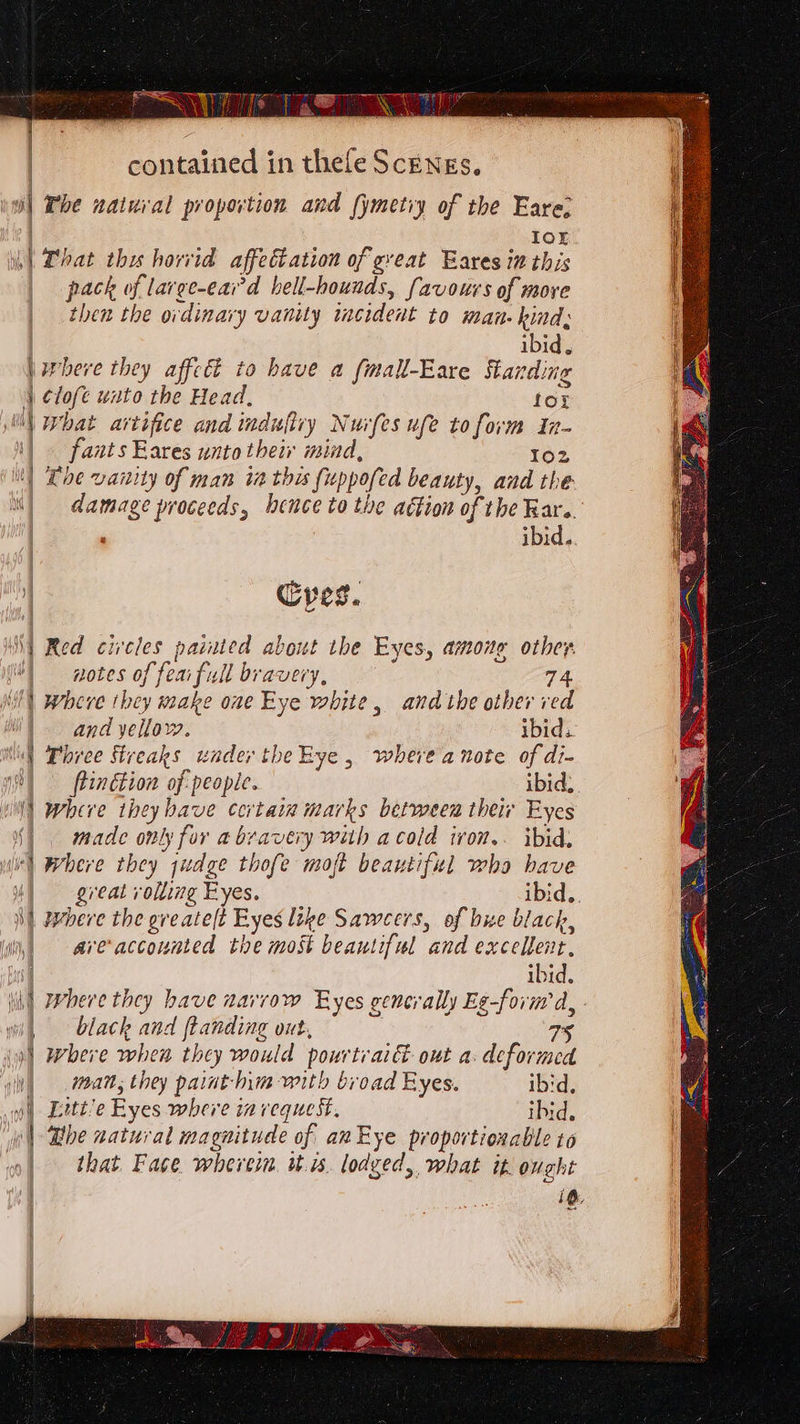 contained in theſe SCENES.
The natural proportion and ſymetry of the Eare,
101
That this horrid affectation of great Eares in this
pack of large-ear'd hell-hounds, ſavours of more
then the ordinary vanity incident to man-kind,
ibid.
Where they affect to have a ſmall-Eare Standing
cloſe unto the Head,
101
What artifice and induſtry Nurſes uſe to form In-
fants Eares unto their mind,
102
The vanity of man in this ſuppoſed beauty, and the
damage proceeds, hence to the action of the Ear.
ibid.
Eyes.
Red circles painted about the Eyes, among other
notes of fearfull bravery,
74
Where they make one Eye white, and the other red
and yellow.
ibid.
Three Streaks under the Eye, where a note of di-
ſtinction of people.
ibid.
Where they have certain marks between their Eyes
made only for a bravery with a cold iron.
ibid.
Where they judge thoſe moſt beautiful who have
great rolling Eyes.
ibid.
Where the greateſt Eyes like Sawcers, of hue black,
are accounted the moſt beautiful and excellent.
ibid.
Where they have narrow Eyes generally Eg-form'd,
black and ſtanding out,
75
Where when they would pourtraict out a deformed
man, they paint him with broad Eyes.
ibid.
Litt'e Eyes where in requeſt.
ibid.
The natural magnitude of an Eye proportionable to
that Face wherein it is lodged, what it ought